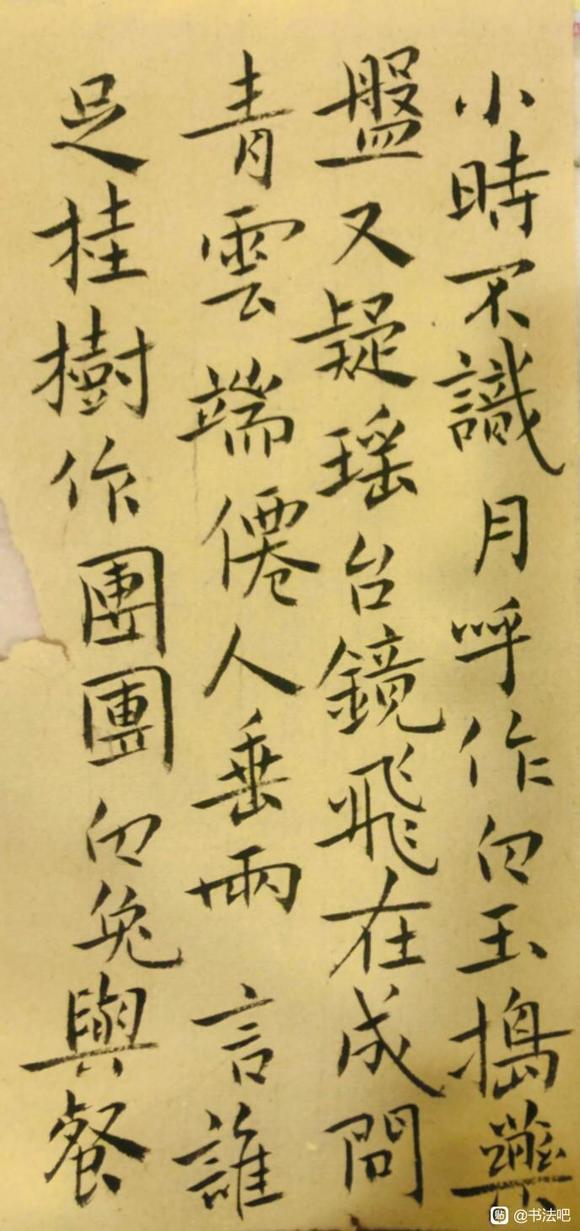 小時不識月呼作白玉搗藥
盤又疑瑶台鏡飛在成問
青雲端僊人垂兩言誰
足桂樹作團團白兔與餐
@书法吧